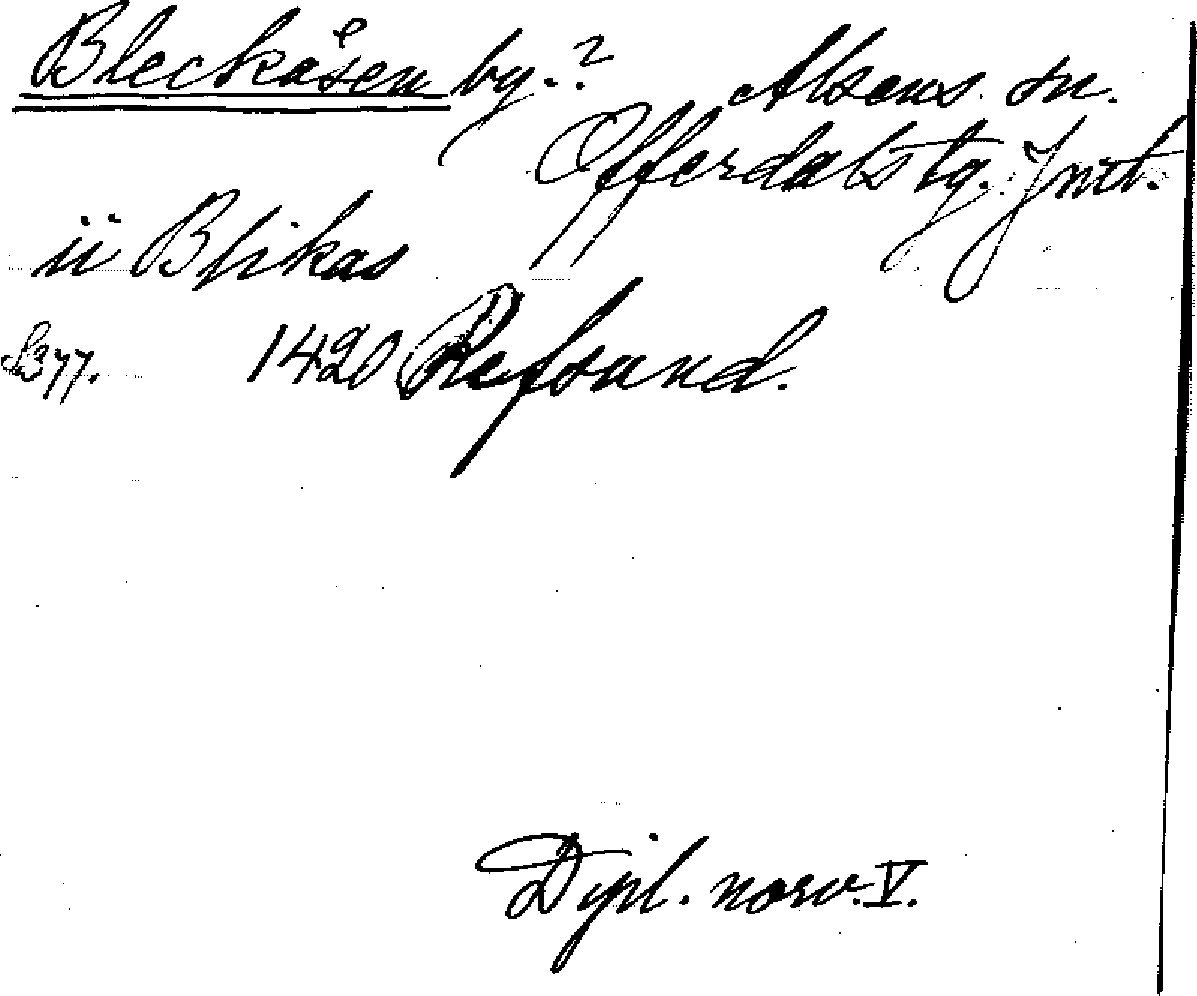 Bleckåsen by.? Alsens sn.
Offerdals tg. Jmt.
ii Blikas
S. 377. 1420 Refsund.
Dipl. norv. V.